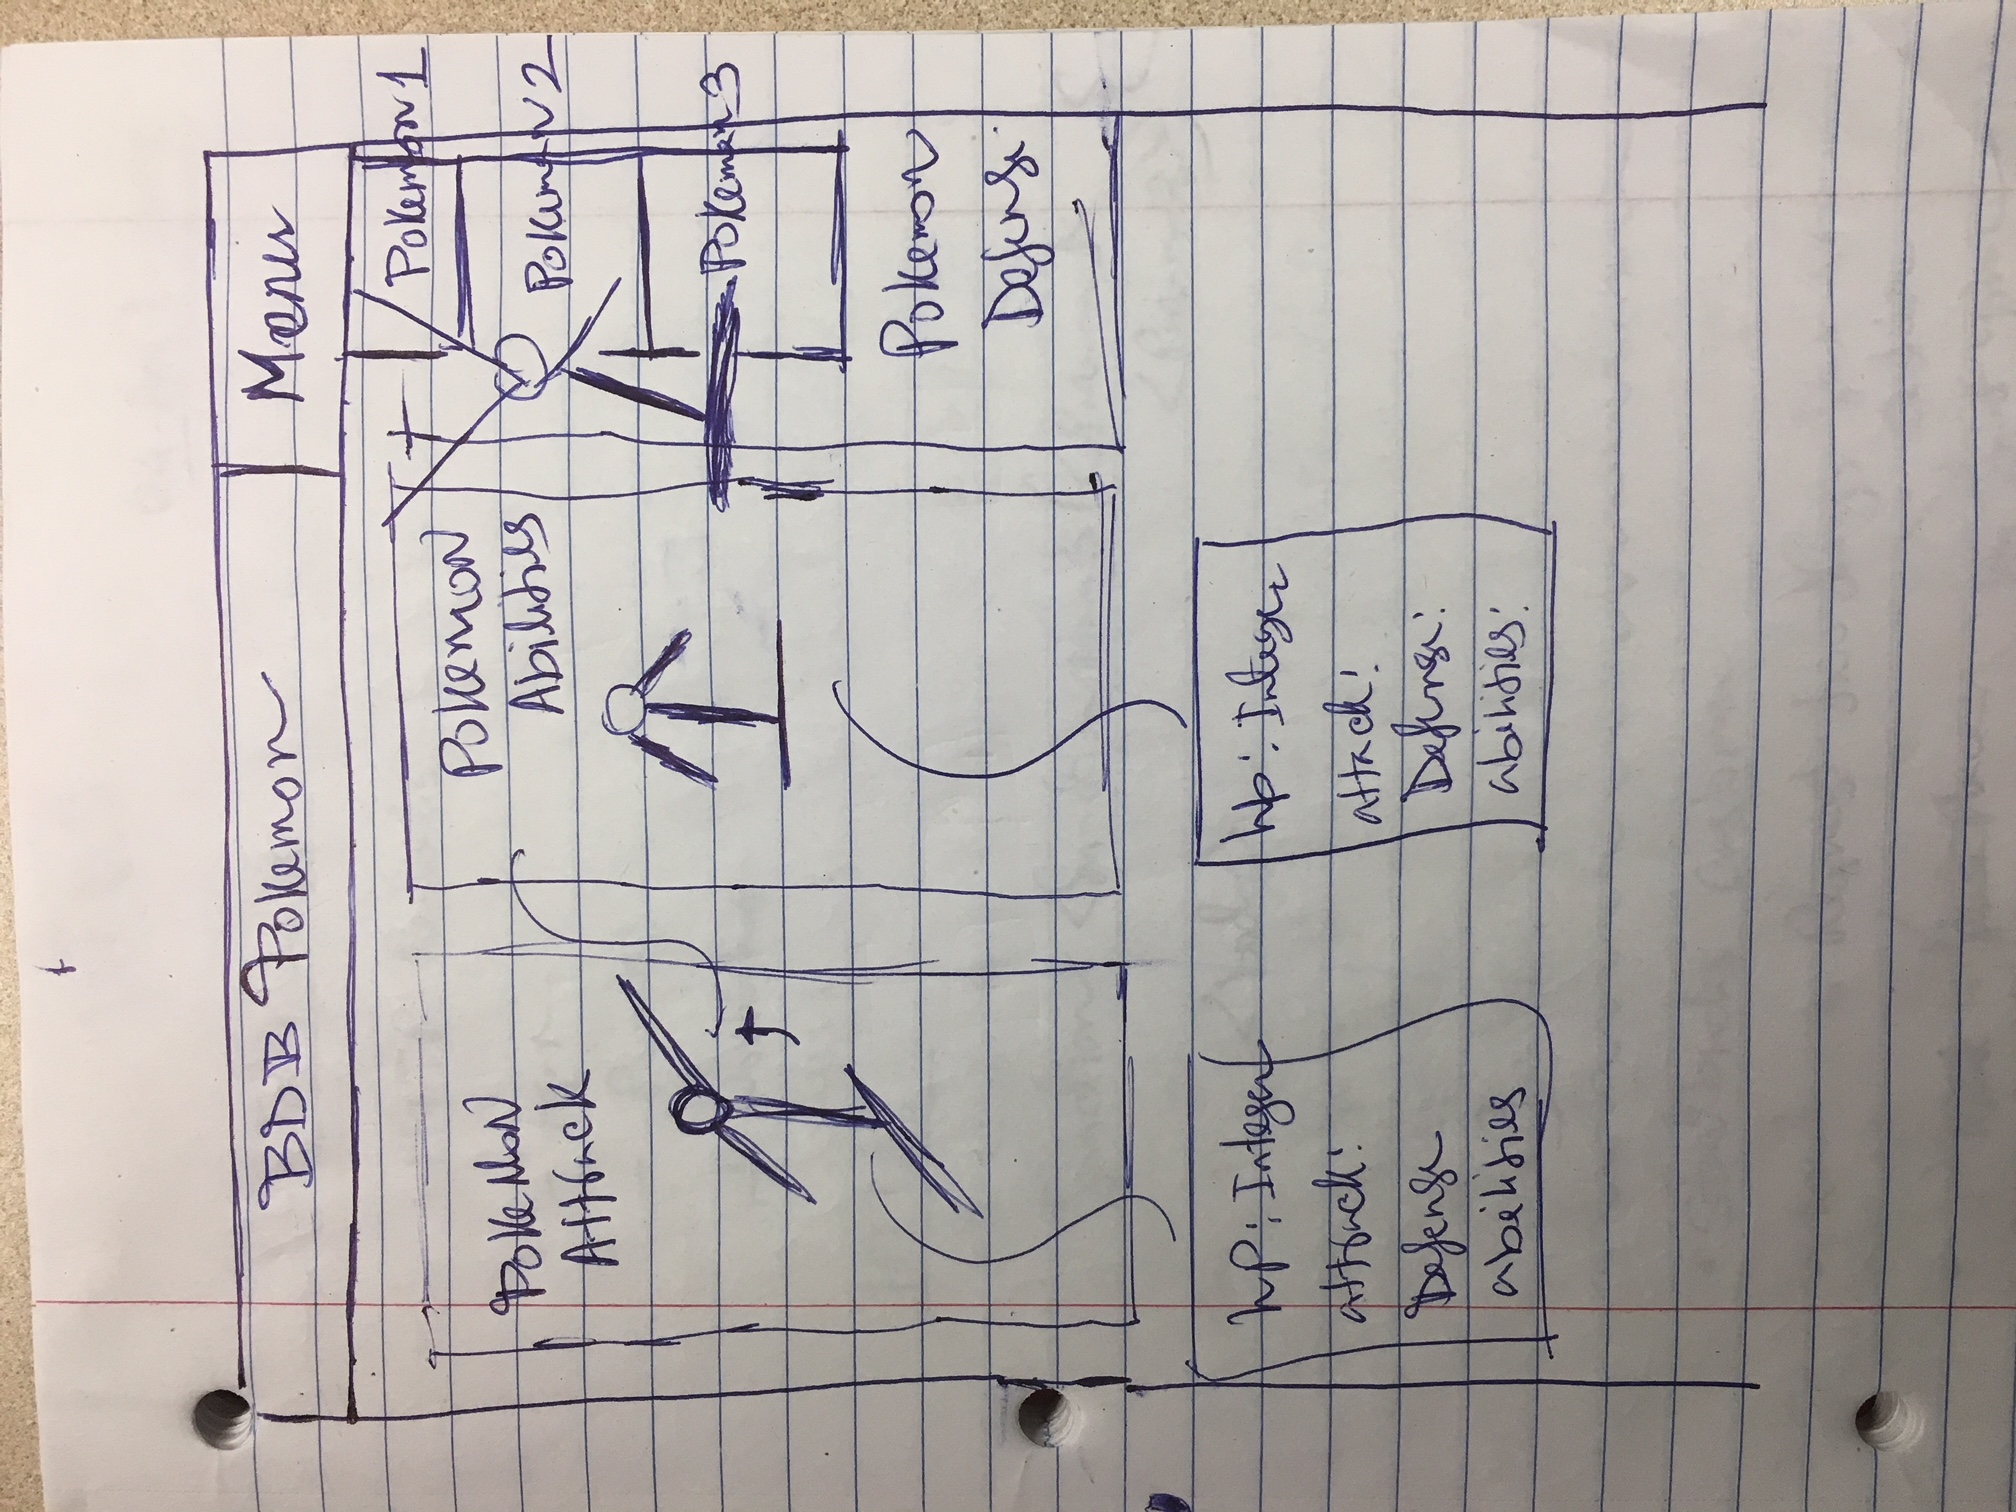 BDB Pokemon
Menu
Pokemon 1
Pokemon 2
Pokemon 3
Pokemon
Attack
Pokemon
Abilities
Pokemon
Defense
hp: Integer
attack:
Defense
abilities
hp: Integer
attack:
Defense:
abilities: